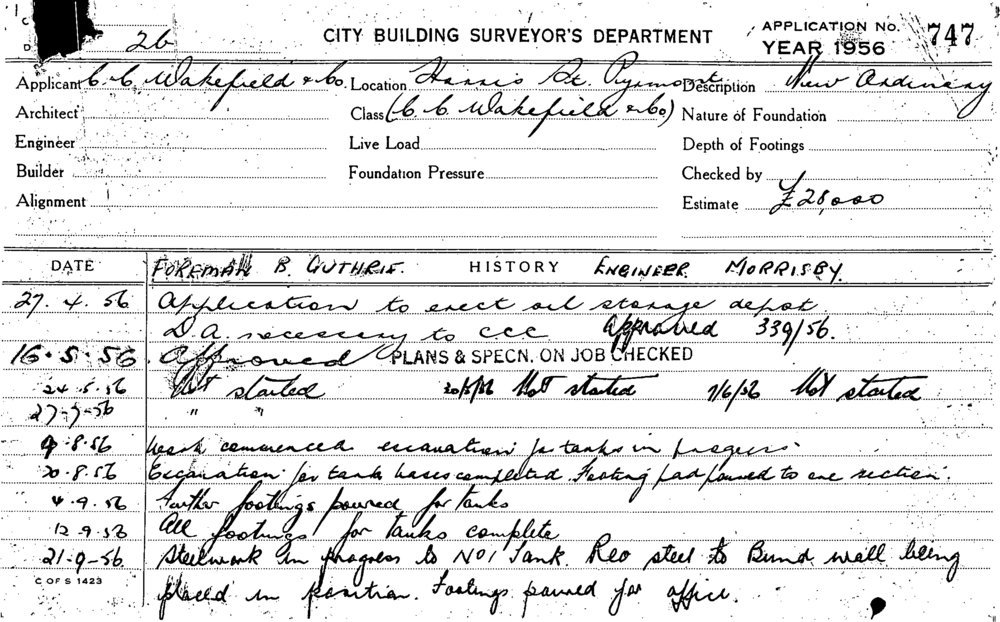 26
CITY BUILDING SURVEYOR'S DEPARTMENT
APPLICATION No. 747
YEAR 1956
Applicant C. C. Wakefield & Co. Location Harris St. Pyrmont Description New Ordinary
Architect Class (C. C. Wakefield & Co) Nature of Foundation
Engineer Live Load Depth of Footings
Builder Foundation Pressure Checked by
Alignment Estimate £28,000
DATE FOREMAN B. GUTHRIE. HISTORY ENGINEER MORRISBY.
27. 4. 56 Application to erect oil storage depot
D.A. necessary to C.C.C. Approved 339/56.
16. 5. 56. Approved PLANS & SPECN. ON JOB CHECKED
24.5.56 Not started 30/5/56 Not started 7/6/56 Not started
27-7-56 " "
9.8.56 Work commenced excavation for tanks in progress.
20.8.56 Excavation for tank bases completed. Footing pad poured to one section.
4.9.56 Further footings poured for tanks
12.9.56 All footings for tanks complete
21-9-56. Steelwork in progress to No 1 Tank. Reo steel to Bund wall being
C OF S 1423
placed in position. Footings poured for office.